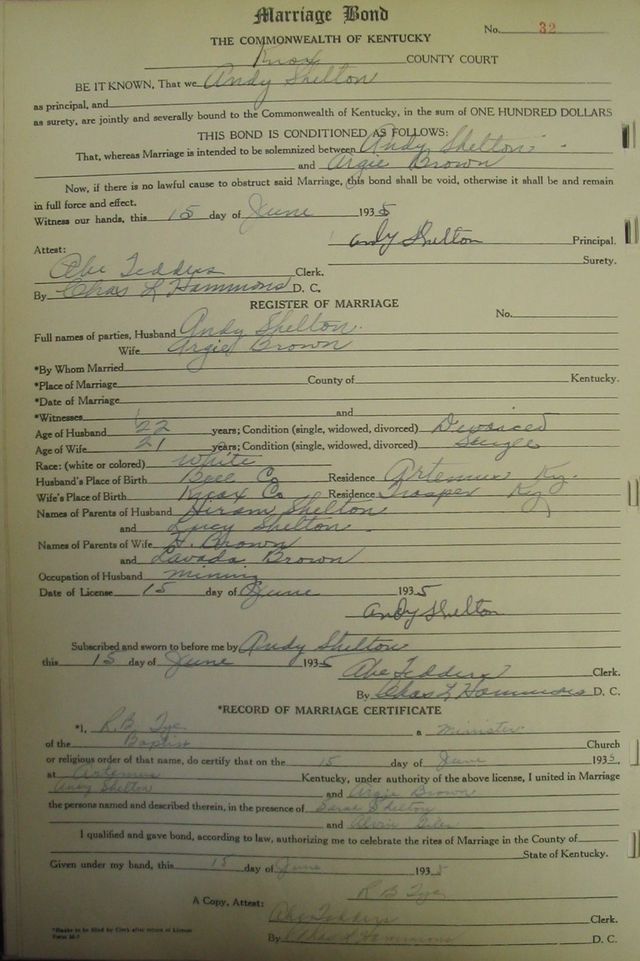 Marriage Bond
No. 32
THE COMMONWEALTH OF KENTUCKY
Knox COUNTY COURT
BE IT KNOWN, That we Andy Shelton
as principal, and
as surety, are jointly and severally bound to the Commonwealth of Kentucky, in the sum of ONE HUNDRED DOLLARS
THIS BOND IS CONDITIONED AS FOLLOWS:
That, whereas Marriage is intended to be solemnized between Andy Shelton
and Argie Brown
Now, if there is no lawful cause to obstruct said Marriage, this bond shall be void, otherwise it shall be and remain
in full force and effect.
Witness our hands, this 15 day of June 1935
Andy Shelton Principal.
Attest: Surety.
Abe Tedders Clerk.
By Chas L Hammons D. C.
REGISTER OF MARRIAGE
No.
Full names of parties, Husband Andy Shelton
Wife Argie Brown
*By Whom Married
*Place of Marriage County of Kentucky.
*Date of Marriage
*Witnesses and
Age of Husband 22 years; Condition (single, widowed, divorced) Divoiced
Age of Wife 21 years; Condition (single, widowed, divorced) Single
Race: (white or colored) White
Husband's Place of Birth Bell Co Residence Artemus Ky.
Wife's Place of Birth Knox Co Residence Trosper Ky
Names of Parents of Husband Hiram Shelton
and Lucy Shelton
Names of Parents of Wife Brown
and Lavada Brown
Occupation of Husband Mining
Date of License 15 day of June 1935
Andy Shelton
Subscribed and sworn to before me by Andy Shelton
this 15 day of June 1935
Abe Tedders Clerk.
By Chas L Hammons D. C.
*RECORD OF MARRIAGE CERTIFICATE
*I, R.B. Tye a Minister
of the Baptist Church
or religious order of that name, do certify that on the 15 day of June 1935.
at Artemus Kentucky, under authority of the above license, I united in Marriage
Andy Shelton and Argie Brown
the persons named and described therein, in the presence of Sarah Shelton
and Giles
I qualified and gave bond, according to law, authorizing me to celebrate the rites of Marriage in the County of
State of Kentucky.
Given under my hand, this 15 day of June 1935
R B Tye
A Copy, Attest:
Abe Tedders Clerk.
By Chas L Hammons D. C.
*Blanks to be filled by Clerk after return of License